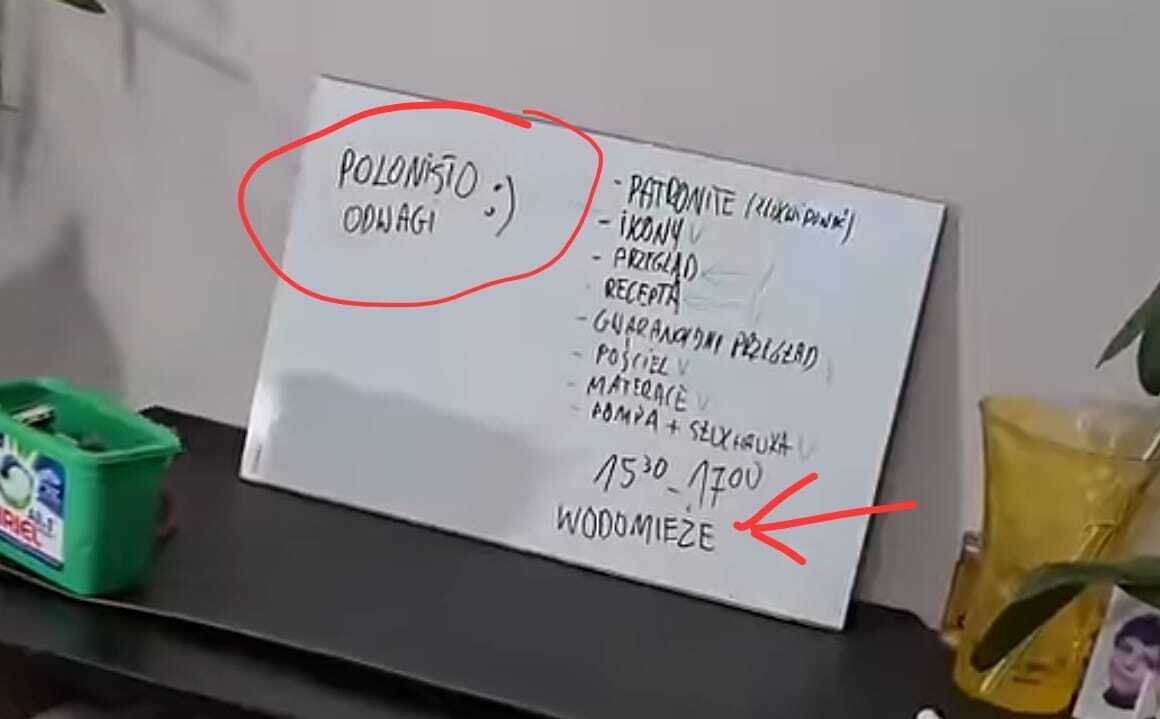 POLONISTO :)
ODWAGI
- PATRONITE
- IKONY V
- PRZEGLĄD
- RECEPTA
- GWARANCYJNY PRZEGLĄD
- POŚCIEL V
- MATERACE V
- POMPA + SZLIFIERKA V
15³⁰ - 17⁰⁰
WODOMIEŻE
ARIEL